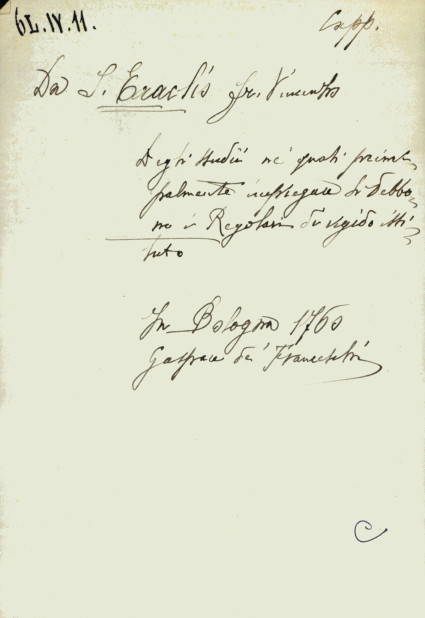 6L.IV.11.
Capp.
Da S. Eraclio fr. Vincenzo
Degli studii ne' quali princi-
palmente impiegare si debbo-
no i Regolari di rigido isti-
tuto
In Bologna 1760
Gaspare de' Franceschi
C